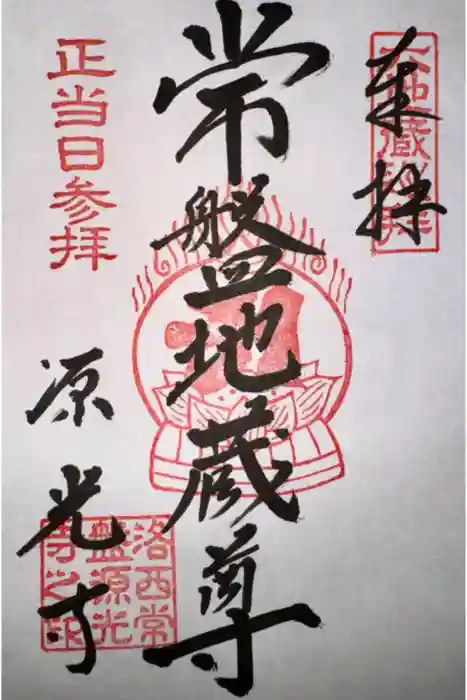 奉拝
六地蔵詣拝
常盤地蔵尊
正当日参拝
源光寺
洛西常
盤源光
寺之印